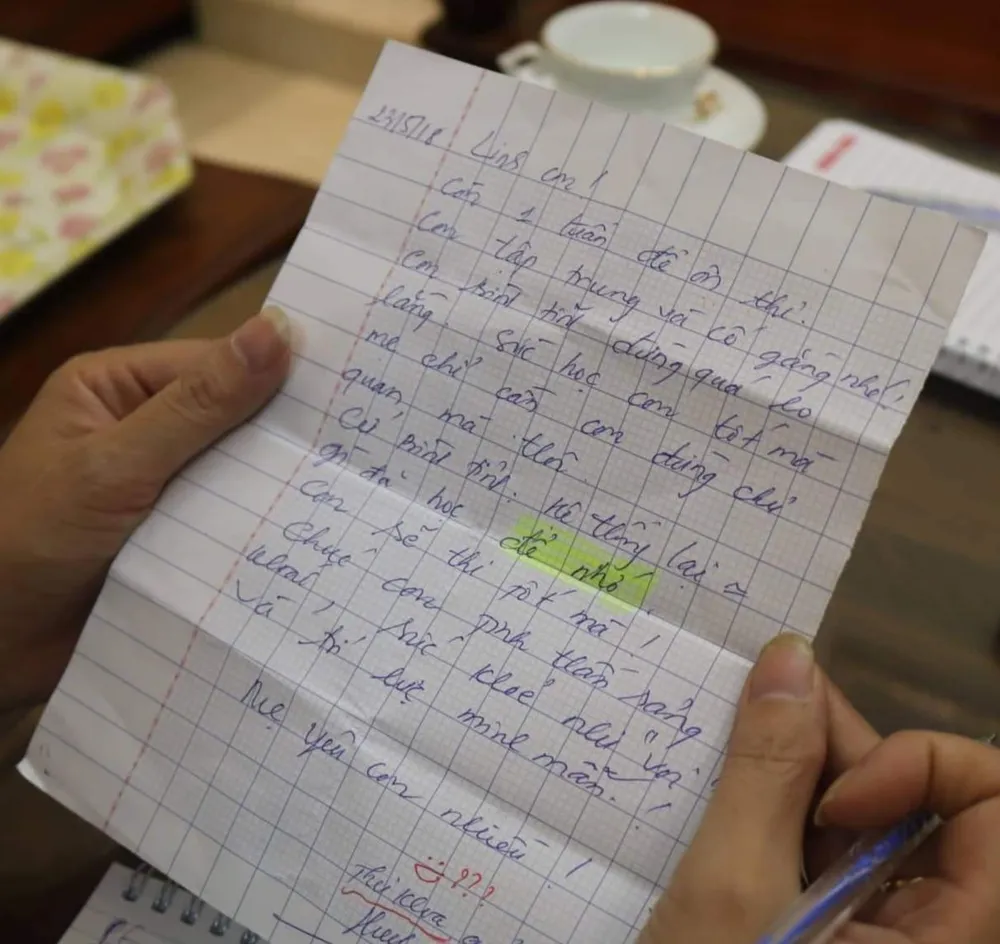 27/5/18 Linh ơn !
Còn 1 tuần để ôn thi.
Con tập trung và cố gắng nhé!
Con bình tĩnh đừng quá lo
lắng. Sức học con tốt mà
mẹ chỉ cần con đừng chủ
quan mà thôi.
Cứ bình tĩnh. Hệ thống lại ~
gì đã học để nhớ
Con sẽ thi tốt mà !
Chúc con tinh thần sảng
khoái, sức khoẻ như voi
Và trí lực minh mẫn !
Mẹ yêu con nhiều !
???
Thi khua